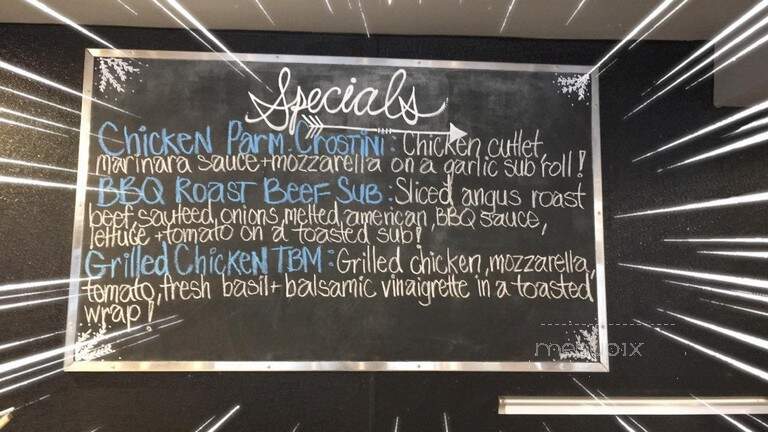 Specials
Chicken Parm. Crostini: Chicken cutlet,
marinara sauce + mozzarella on a garlic sub roll!
BBQ Roast Beef Sub: Sliced angus roast
beef, sauteed onions, melted american, BBQ sauce,
lettuce + tomato on a toasted sub!
Grilled Chicken TBM: Grilled chicken, mozzarella,
tomato, fresh basil + balsamic vinaigrette in a toasted
wrap!
menupix